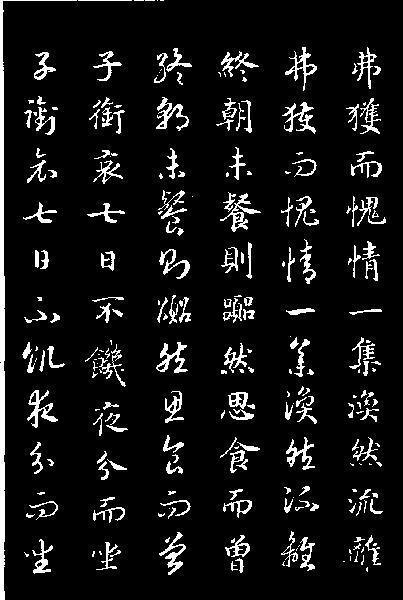 弗獲而愧情一集渙然流離
弗獲而愧情一集渙然流離
終朝未餐則然思食而曾
終朝未餐則然思食而曾
子銜哀七日不饑夜分而坐
子銜哀七日不飢夜分而坐